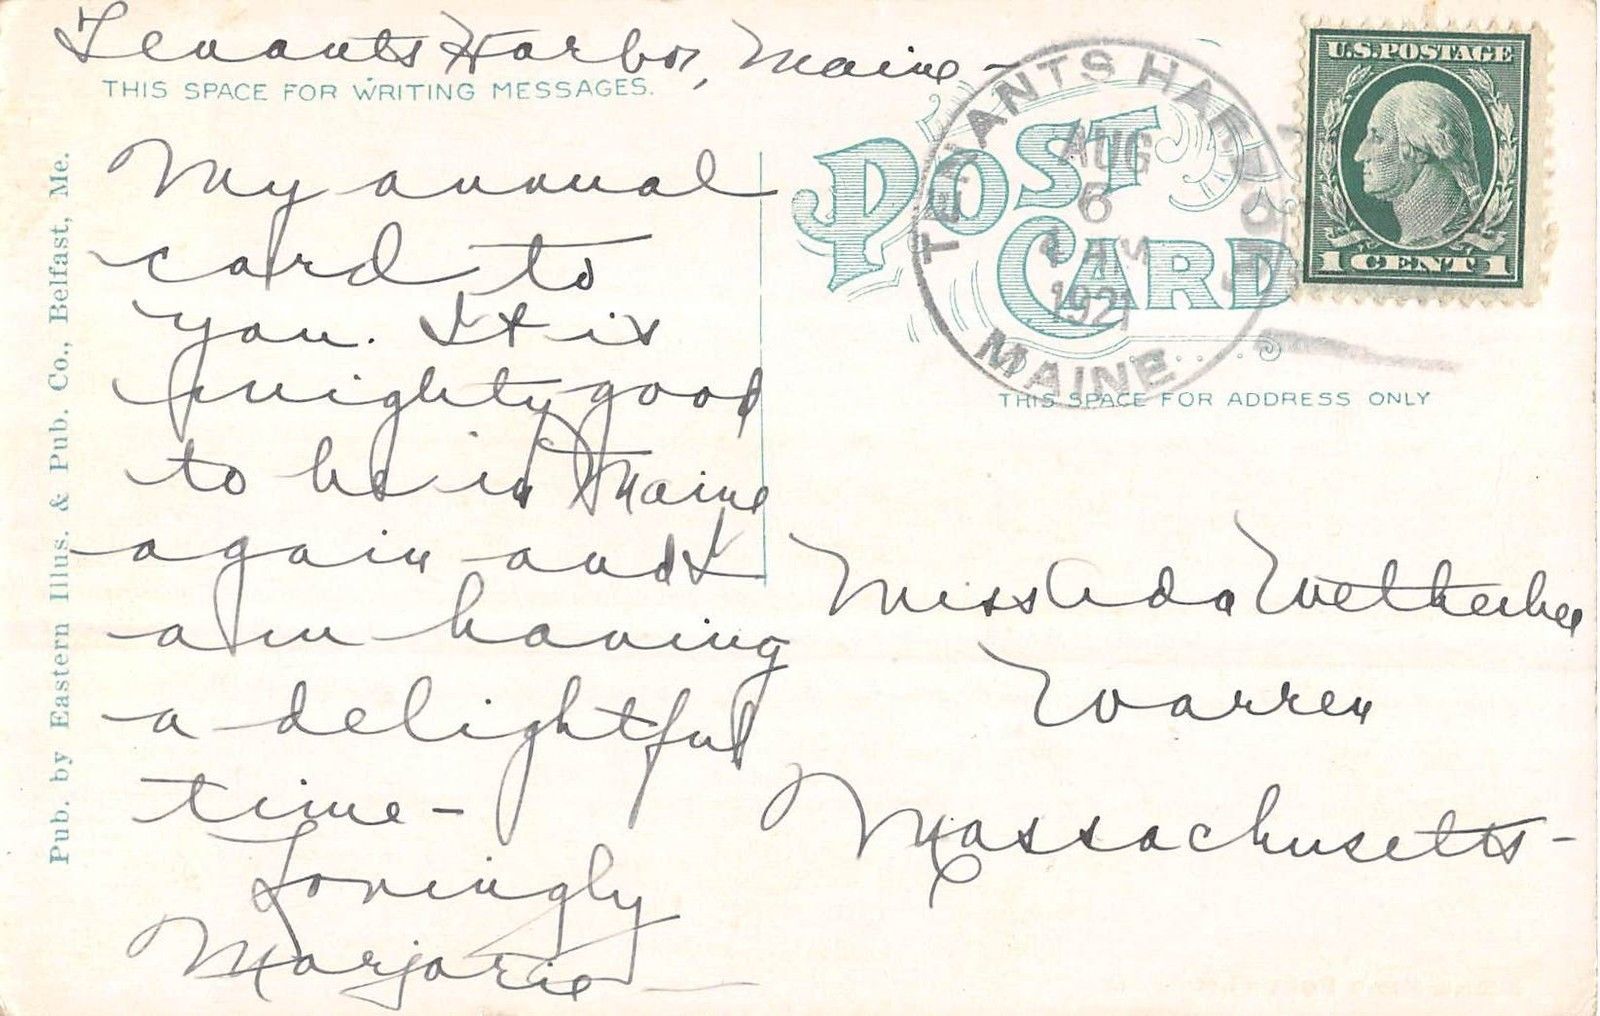 Tenants Harbor, Maine -
THIS SPACE FOR WRITING MESSAGES.
My annual
card to
you. It is
mighty good
to be in Maine
again and I
am having
a delightful
time -
Lovingly
Marjorie
Pub. by Eastern Illus. & Pub. Co., Belfast, Me.
POST
CARD
TENANTS HARBOR
AUG
6
AM
1921
MAINE
U.S. POSTAGE
1 CENT 1
THIS SPACE FOR ADDRESS ONLY
Miss Ada Wetherbee
Warren
Massachusetts -